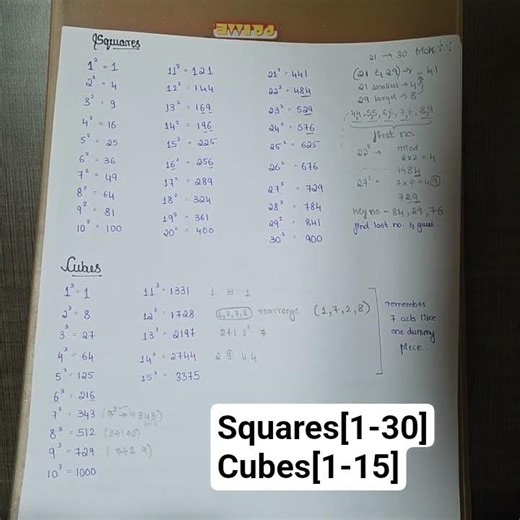 Squares
1² = 1
2² = 4
3² = 9
4² = 16
5² = 25
6² = 36
7² = 49
8² = 64
9² = 81
10² = 100
11² = 121
12² = 144
13² = 169
14² = 196
15² = 225
16² = 256
17² = 289
18² = 324
19² = 361
20² = 400
21² = 441
22² = 484
23² = 529
24² = 576
25² = 625
26² = 676
27² = 729
28² = 784
29² = 841
30² = 900
21 → 30
(21 & 29) → 41
21 small → 4
29 large → 8
44, 55, 66, 77, 89
first no.
22² →
2x2 = 4
484
27² =
7x7 = 49
729
Key no - 84, 29, 76
find last no. &
Cubes
1³ = 1
2³ = 8
3³ = 27
4³ = 64
5³ = 125
6³ = 216
7³ = 343
8³ = 512
9³ = 729
10³ = 1000
11³ = 1331
12³ = 1728 rearrange (1,7,2,8)
13³ = 2197
14³ = 2744
15³ = 3375
remember
7 acts like
one dummy
piece
Squares[1-30]
Cubes[1-15]